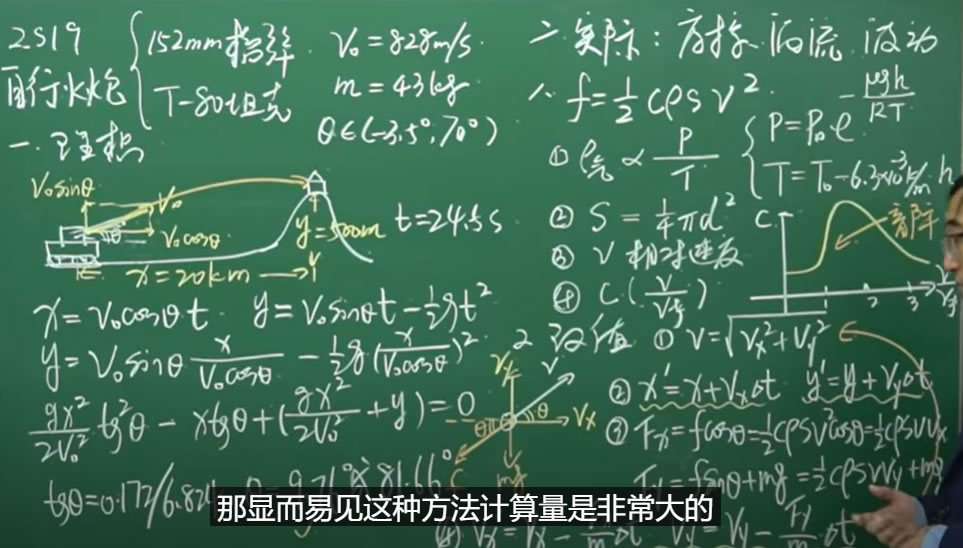 2S19
自行火炮
152mm榴弹
T-80坦克
V₀=828m/s.
m=43kg
θ∈(-3.5°,70°)
一.理想
V₀sinθ
V₀
θ
V₀cosθ
x=20km
y=500m
t=24.5s
x=V₀cosθt
y=V₀sinθt-½gt²
y=V₀sinθ x/(V₀cosθ) - ½g(x/(V₀cosθ))²
gx²/(2V₀²) tg²θ - xtgθ+(gx²/(2V₀²)+y)=0
tgθ=0.172/6.82
81.66°
二.实际:
1. f=½cρsv².
① ρ气 ∝ P/T
P=P₀e^(-μgh/RT)
T=T₀-6.3×10⁻³K/m h
② S=¼πd²
③ V 相对速度
④ C(V/V声)
C
音障
2
3
V/V声
2.
① V=√(Vx²+Vy²)
② x'=x+Vxδt y'=y+Vyδt
③ Fx=fcosθ=½cρsv²cosθ=½cρsvVx
Fy=fsinθ+mg=½cρsvVy+mg
Vy
V
θ
Vx
mg
那显而易见这种方法计算量是非常大的